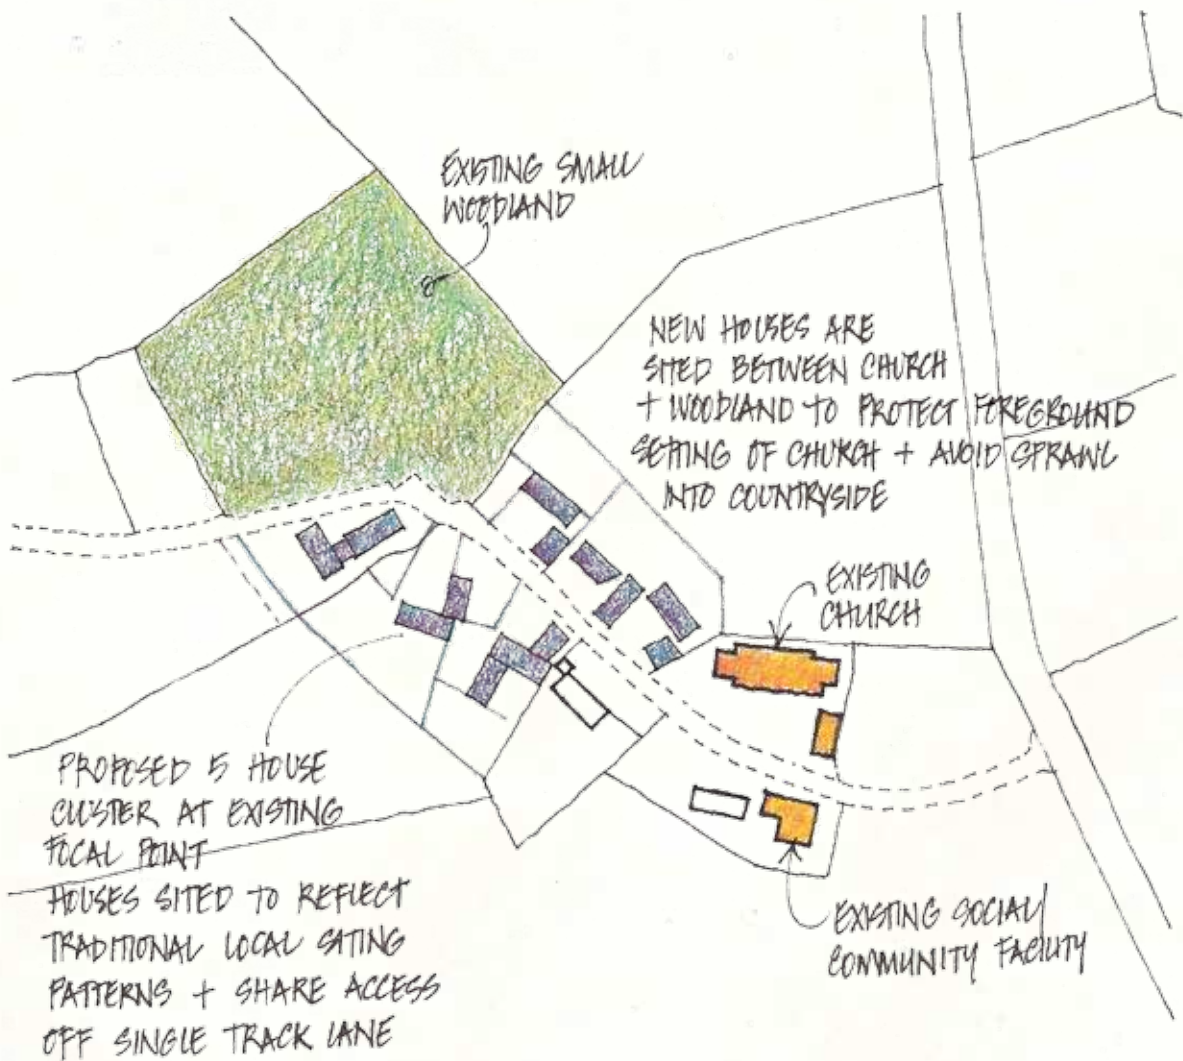 EXISTING SMALL
WOODLAND
NEW HOUSES ARE
SITED BETWEEN CHURCH
+ WOODLAND TO PROTECT FOREGROUND
SETTING OF CHURCH + AVOID SPRAWL
INTO COUNTRYSIDE
EXISTING
CHURCH
PROPOSED 5 HOUSE
CLUSTER AT EXISTING
FOCAL POINT
HOUSES SITED TO REFLECT
TRADITIONAL LOCAL SITING
PATTERNS + SHARE ACCESS
OFF SINGLE TRACK LANE
EXISTING SOCIAL/
COMMUNITY FACILITY